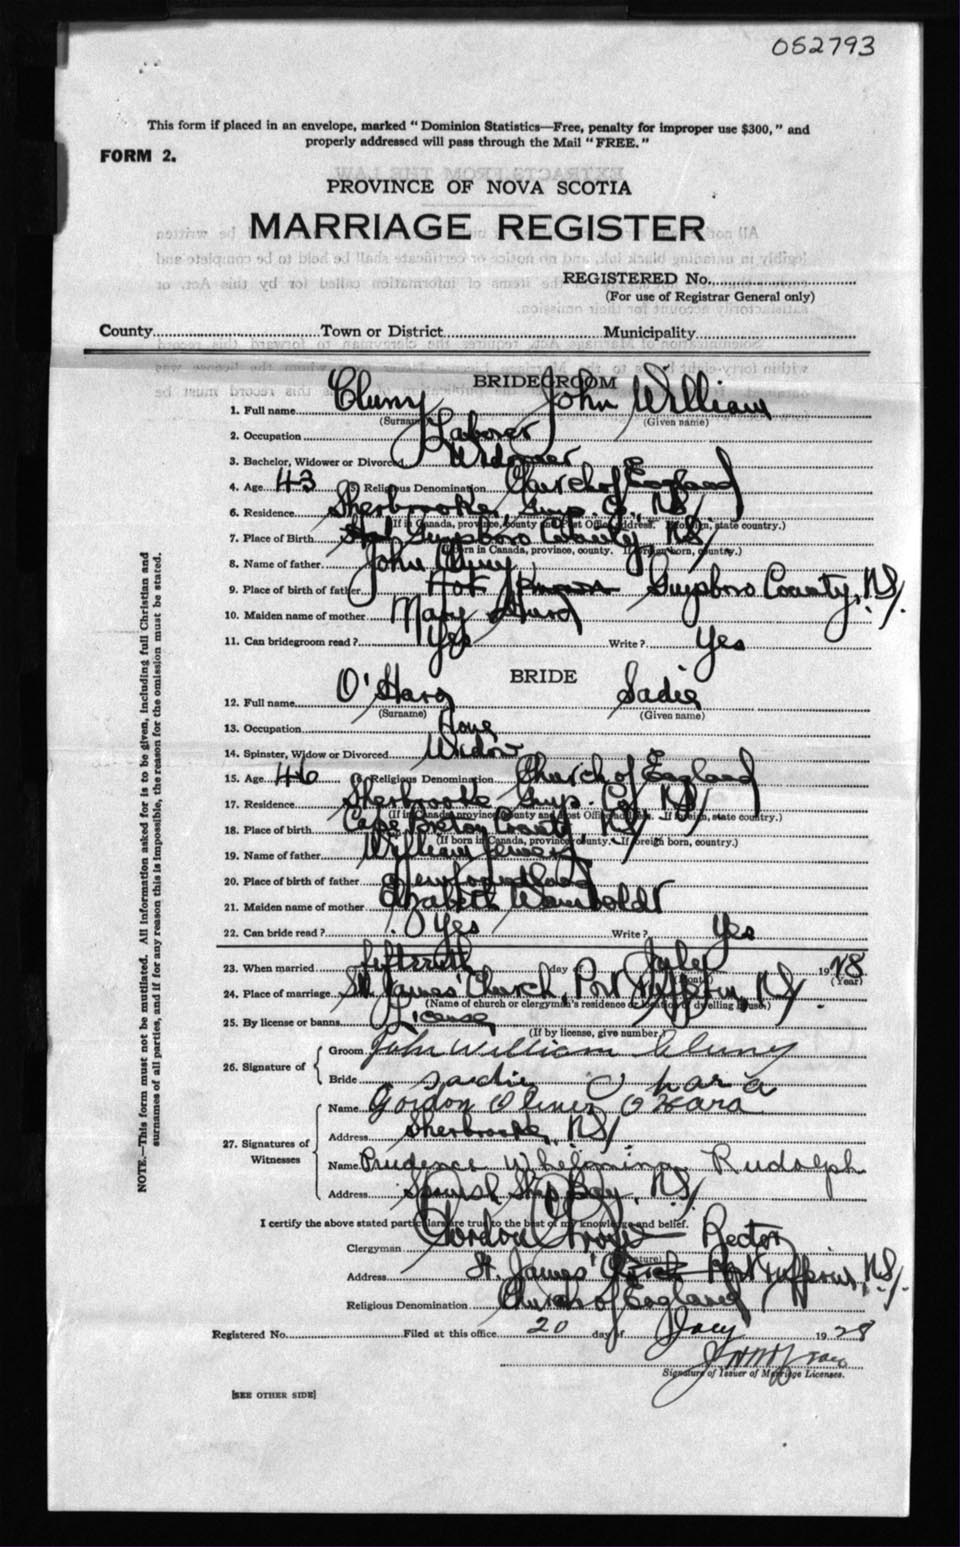 052793
This form if placed in an envelope, marked "Dominion Statistics—Free, penalty for improper use $300," and
properly addressed will pass through the Mail "FREE."
FORM 2.
PROVINCE OF NOVA SCOTIA
MARRIAGE REGISTER
REGISTERED No.
(For use of Registrar General only)
County Town or District Municipality
BRIDEGROOM
1. Full name Cluny John William
(Surname) (Given name)
2. Occupation Laborer
3. Bachelor, Widower or Divorced Widower
4. Age 43 (5) Religious Denomination Church of England
6. Residence Sherbrooke, Guys. Co., NS/
(If in Canada, province, county and Post Office address. If foreign, state country.)
7. Place of Birth Guysboro County, NS/
(If born in Canada, province, county. If foreign born, country.)
8. Name of father John Cluny
9. Place of birth of father Guysboro County, NS/.
10. Maiden name of mother Mary
11. Can bridegroom read? Yes Write? Yes
BRIDE
12. Full name O'Hara Sadie
(Surname) (Given name)
13. Occupation
14. Spinster, Widow or Divorced Widow
15. Age 46 (16) Religious Denomination Church of England
17. Residence Sherbrooke Guys. Co, NS/
(If in Canada, province, county and Post Office address. If foreign, state country.)
18. Place of birth Cape Breton County, NS/
(If born in Canada, province, county. If foreign born, country.)
19. Name of father William
20. Place of birth of father Newfoundland
21. Maiden name of mother Elizabeth
22. Can bride read? Yes Write? Yes
23. When married day of 19 28
(Month) (Year)
24. Place of marriage St. James' Church, Port Dufferin, NS/.
(Name of church or clergyman's residence or location of dwelling house.)
25. By license or banns License
(If by license, give number)
26. Signature of
Groom John William Cluny
Bride Sadie O hara
27. Signatures of Witnesses
Name Gordon O Hara
Address Sherbrooke, NS/
Name Prudence Rudolph
Address Spanish Ship Bay, NS/
I certify the above stated particulars are true to the best of my knowledge and belief.
Clergyman Gordon Rector
(Signature)
Address St. James' Church Port Dufferin, NS/.
Religious Denomination Church of England
Registered No. Filed at this office 20 day of 19 28
Signature of Issuer of Marriage Licenses.
[SEE OTHER SIDE]
NOTE.—This form must not be mutilated. All information asked for is to be given, including full Christian and
surnames of all parties, and if for any reason this is impossible, the reason for the omission must be stated.